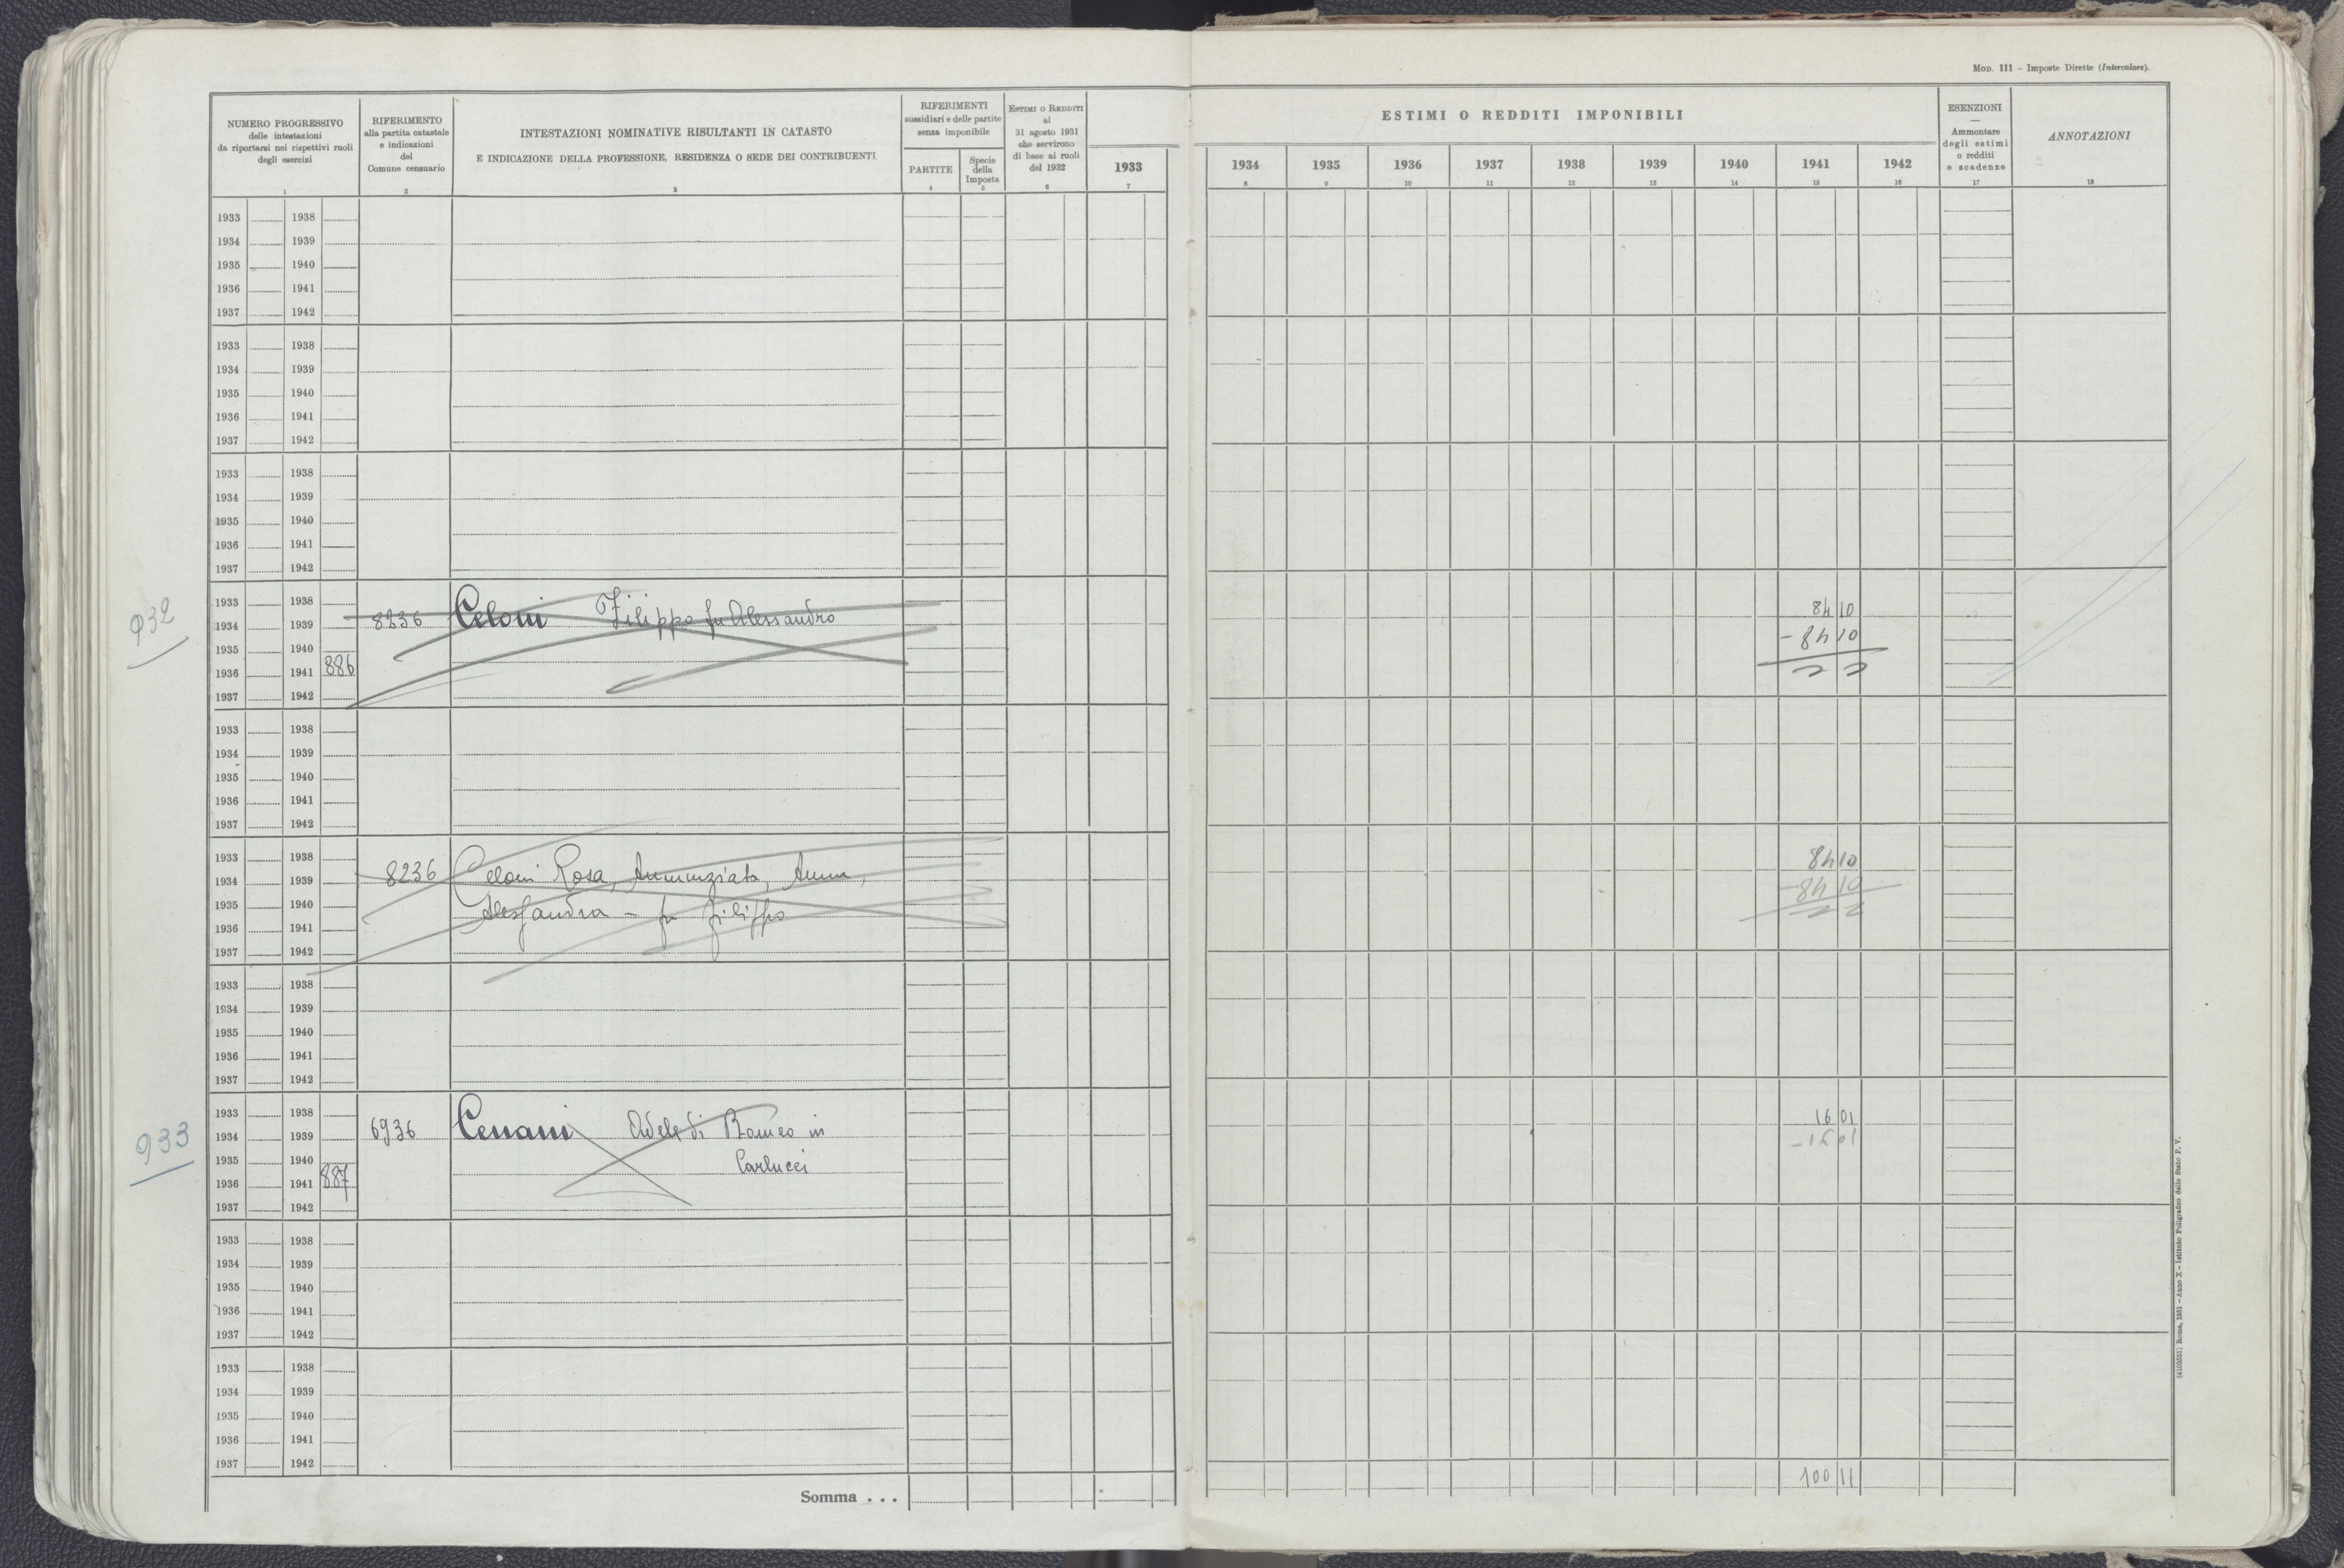 MOD. 111 – Imposte Dirette (Intercalare).
NUMERO PROGRESSIVO
delle intestazioni
da riportarsi nei rispettivi ruoli
degli esercizi
1
RIFERIMENTO
alla partita catastale
e indicazioni
del
Comune censuario
2
INTESTAZIONI NOMINATIVE RISULTANTI IN CATASTO
E INDICAZIONE DELLA PROFESSIONE, RESIDENZA O SEDE DEI CONTRIBUENTI
3
RIFERIMENTI
sussidiari e delle partite
senza imponibile
PARTITE
4
Specie
della
Imposta
5
ESTIMI O REDDITI
al
31 agosto 1931
che servirono
di base ai ruoli
del 1932
6
1933
7
ESTIMI O REDDITI IMPONIBILI
1934 1935 1936 1937 1938 1939 1940 1941 1942
8 9 10 11 12 13 14 15 16
ESENZIONI
—
Ammontare
degli estimi
o redditi
e scadenze
17
ANNOTAZIONI
18
1933 1938
1934 1939
1935 1940
1936 1941
1937 1942
1933 1938
1934 1939
1935 1940
1936 1941
1937 1942
1933 1938
1934 1939
1935 1940
1936 1941
1937 1942
932
1933 1938 84 10
1934 1939 8236 Celoni Filippo fu Alessandro
1935 1940 - 84 10
1936 1941 886
1937 1942
1933 1938
1934 1939
1935 1940
1936 1941
1937 1942
1933 1938 84 10
1934 1939 8236 Celoni Rosa, Annunziata, Anna,
1935 1940 Alessandra - fu Filippo - 84 10
1936 1941
1937 1942
1933 1938
1934 1939
1935 1940
1936 1941
1937 1942
933
1933 1938 16 01
1934 1939 6936 Cenani Adele di Romeo in
1935 1940 Carlucci
1936 1941 887
1937 1942
1933 1938
1934 1939
1935 1940
1936 1941
1937 1942
1933 1938
1934 1939
1935 1940
1936 1941
1937 1942
Somma . . . 100 11
(4103531) Roma, 1931 – Anno X – Istituto Poligrafico dello Stato P. V.